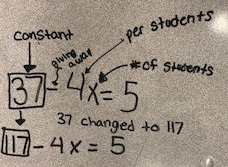 constant
per students
giving away
# of students
37 - 4x = 5
37 changed to 117
117 - 4x = 5